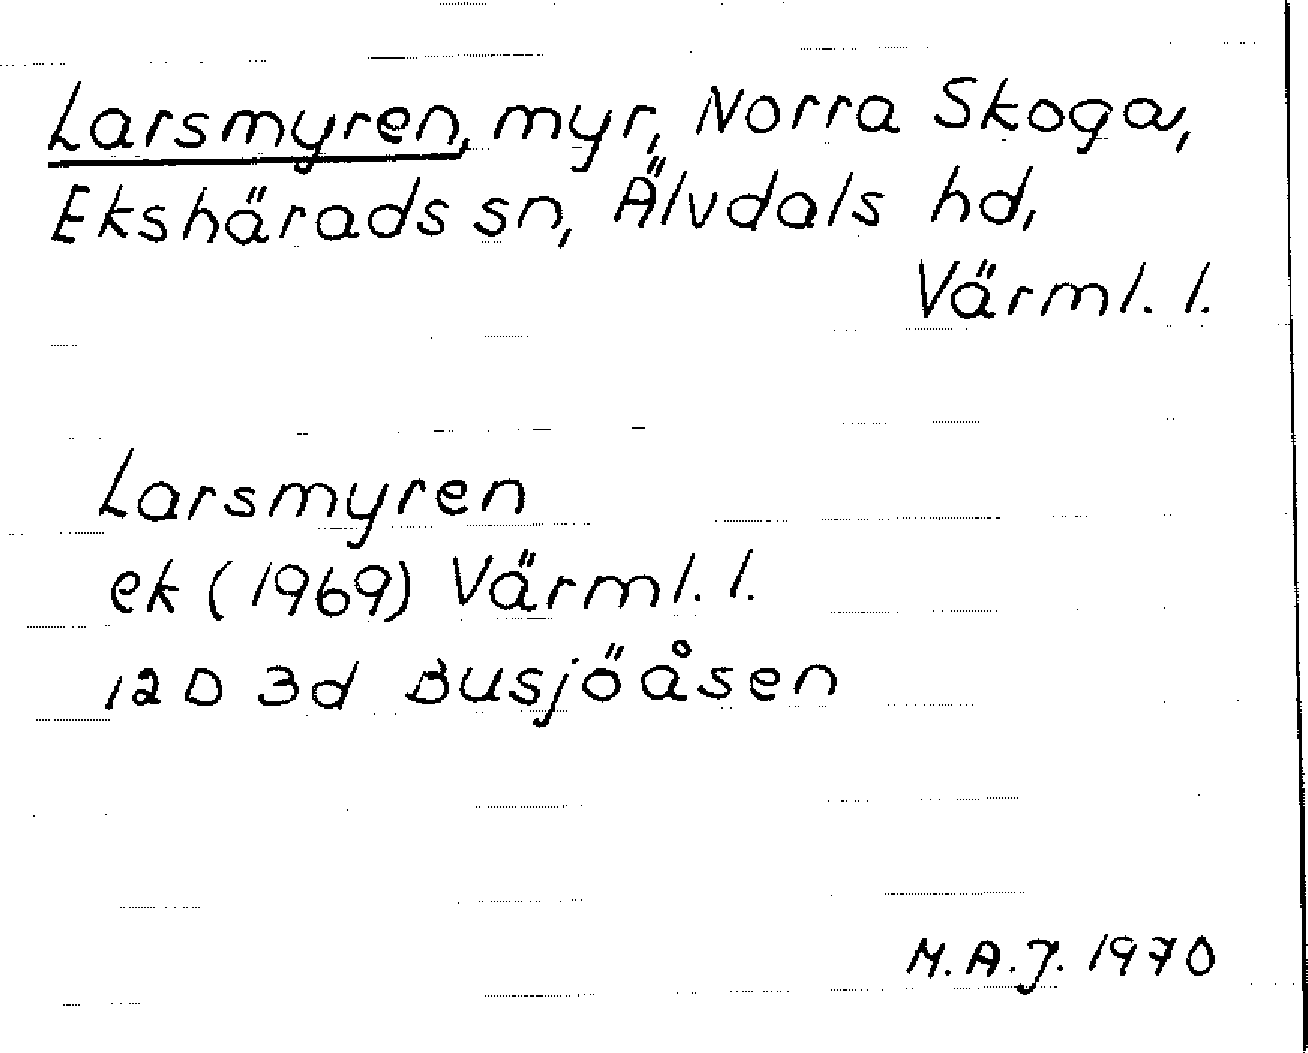 Larsmyren, myr, Norra Skoga,
Ekshärads sn, Älvdals hd,
Värml. l.
Larsmyren
ek (1969) Värml. l.
12D 3d Busjöåsen
M.A.J. 1970